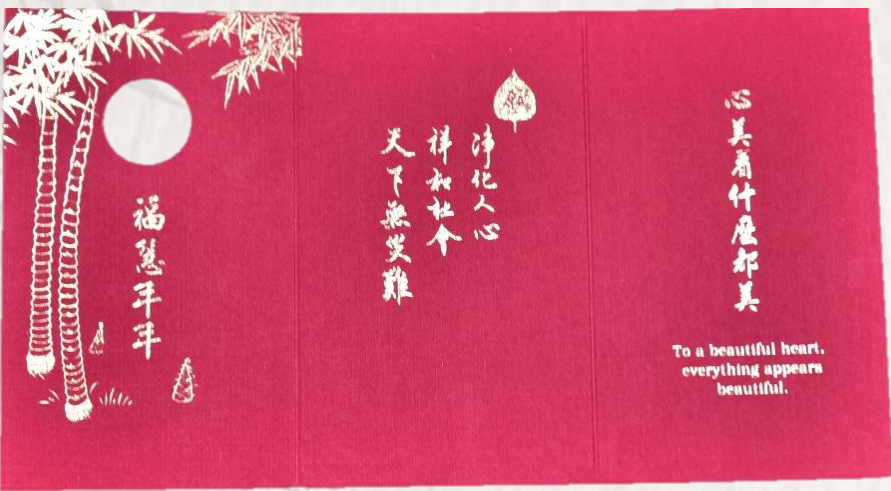 福慧年年
淨化人心
祥和社會
天下無災難
心美看什麼都美
To a beautiful heart,
everything appears
beautiful.